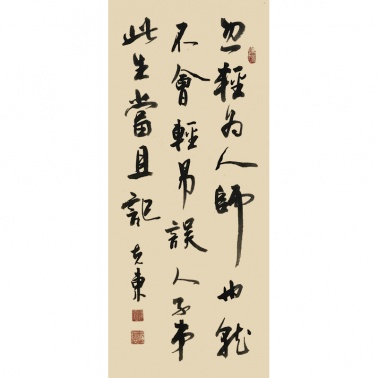 忽輕為人師也就
不會輕易誤人子弟
此生當且記 克東